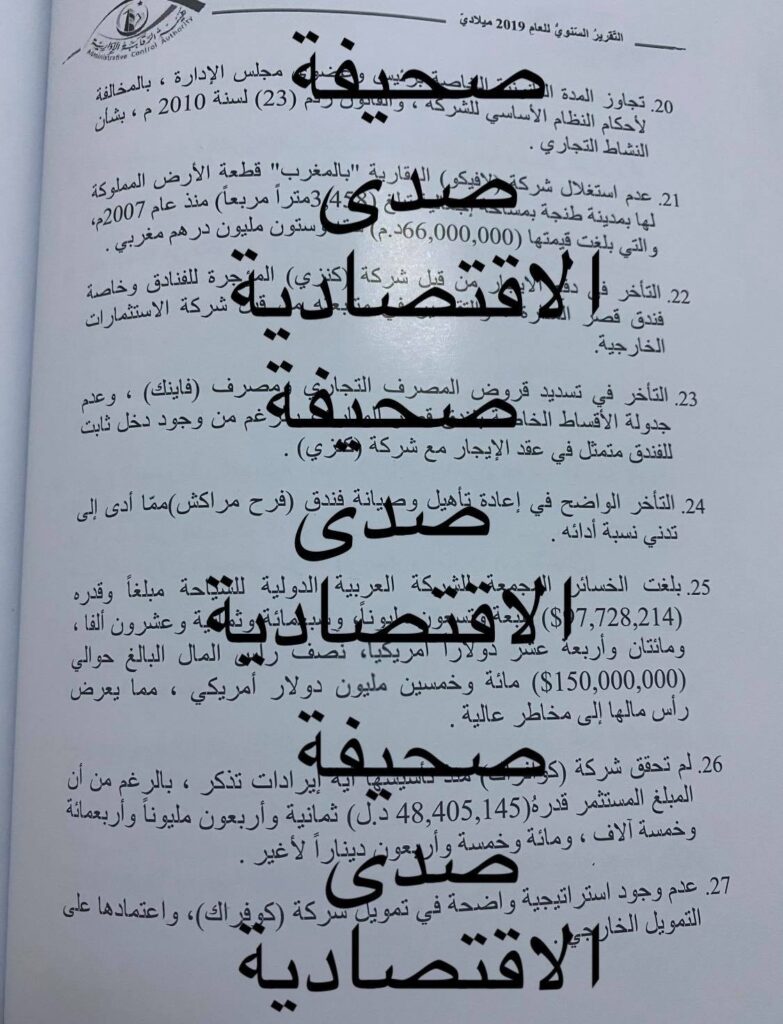 التقرير السنوي للعام 2019 ميلادي
Administrative Control Authority
20. تجاوز المدة الخاصة برئيس وعضوي مجلس الإدارة ، بالمخالفة
لأحكام النظام الأساسي للشركة ، والقانون رقم (23) لسنة 2010 م ، بشأن
النشاط التجاري .
21. عدم استغلال شركة (لافيكو) العقارية "بالمغرب" قطعة الأرض المملوكة
لها بمدينة طنجة بمساحة (3,458متراً مربعاً) منذ عام 2007م،
والتي بلغت قيمتها (66,000,000د.م) ستة وستون مليون درهم مغربي .
22. التأخر في دفع الإيجار من قبل شركة (كنزي) المؤجرة للفنادق وخاصة
فندق قصر من قبل شركة الاستثمارات
الخارجية.
23. التأخر في تسديد قروض المصرف التجاري ومصرف (فاينك) ، وعدم
جدولة الأقساط بالرغم من وجود دخل ثابت
للفندق متمثل في عقد الإيجار مع شركة (كنزي) .
24. التأخر الواضح في إعادة تأهيل وصيانة فندق (فرح مراكش)ممّا أدى إلى
تدني نسبة أدائه .
25. بلغت الخسائر المجمعة للشركة العربية الدولية للسياحة مبلغاً وقدره
($97,728,214) سبعة وتسعون مليوناً، وسبعمائة وثمانية وعشرون ألفا ،
ومائتان وأربعة عشر دولاراً أمريكيا، نصف رأس المال البالغ حوالي
($150,000,000) مائة وخمسين مليون دولار أمريكي ، مما يعرض
رأس مالها إلى مخاطر عالية .
26. لم تحقق شركة (كوفراك) منذ تأسيسها أية إيرادات تذكر ، بالرغم من أن
المبلغ المستثمر قدرة(48,405,145 د.ل) ثمانية وأربعون مليوناً وأربعمائة
وخمسة آلاف ، ومائة وخمسة وأربعون ديناراً لأغير .
27. عدم وجود استراتيجية واضحة في تمويل شركة (كوفراك)، واعتمادها على
التمويل الخارجي .
صحيفة
صدى
الاقتصادية
صحيفة
صدى
الاقتصادية
صحيفة
صدى
الاقتصادية